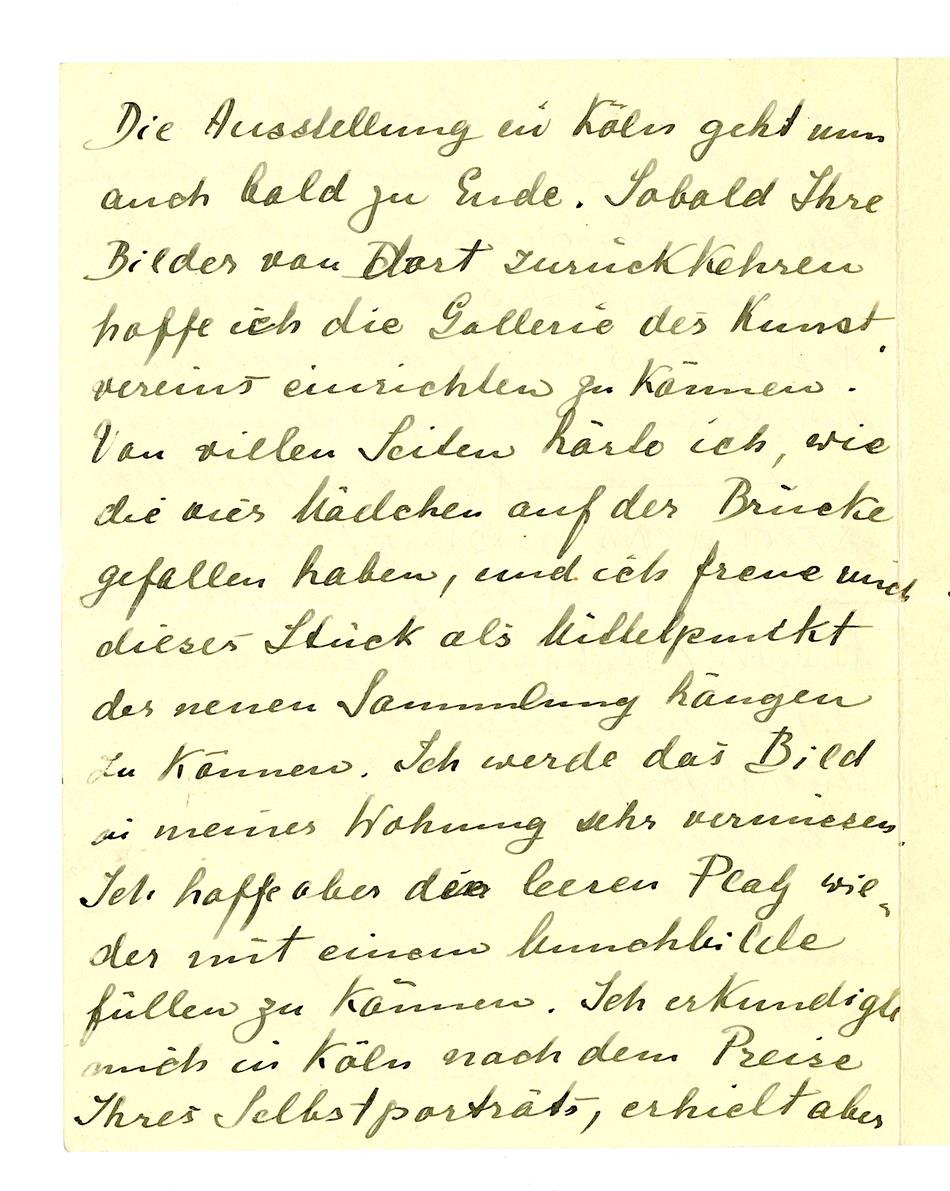 Die Ausstellung in Köln geht nun
auch bald zu Ende. Sobald Ihre
Bilder von Dort zurückkehren
hoffe ich die Gallerie des Kunst-
vereins einrichten zu können.
Von villen Seiten hörte ich, wie
die vier Mädchen auf der Brücke
gefallen haben, und ich freue mich
dieses Stück als Mittelpunkt
der neuen Sammlung hängen
zu können. Ich werde das Bild
in meiner Wohnung sehr vermissen.
Ich hoffe aber den leeren Platz wie-
der mit einem Munchbilde
füllen zu können. Ich erkundigte
mich in Köln nach dem Preise
Ihres Selbstporträts, erhielt aber